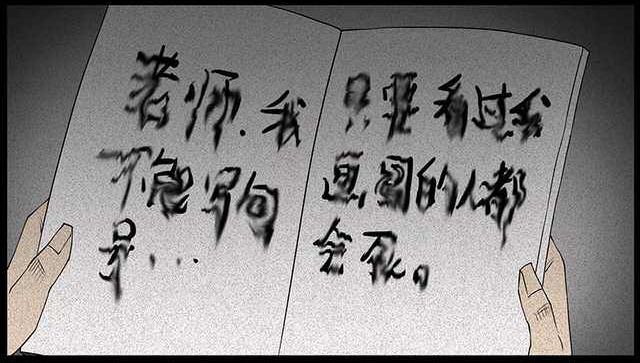 老师.我
不能写句
号...
只要看过我
画图的人都
会死。